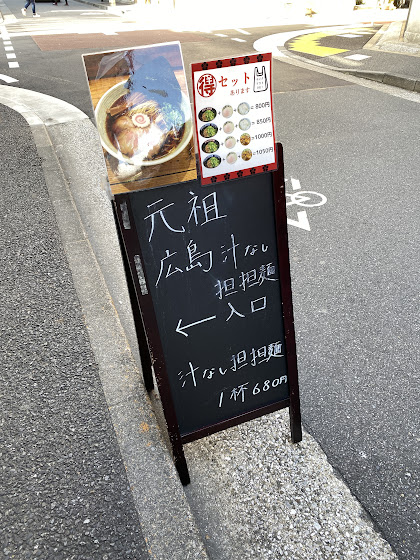 得セット
あります
=800円
=850円
=1000円
=1050円
元祖
広島汁なし
担担麺
←入口
汁なし担担麺
1杯680円